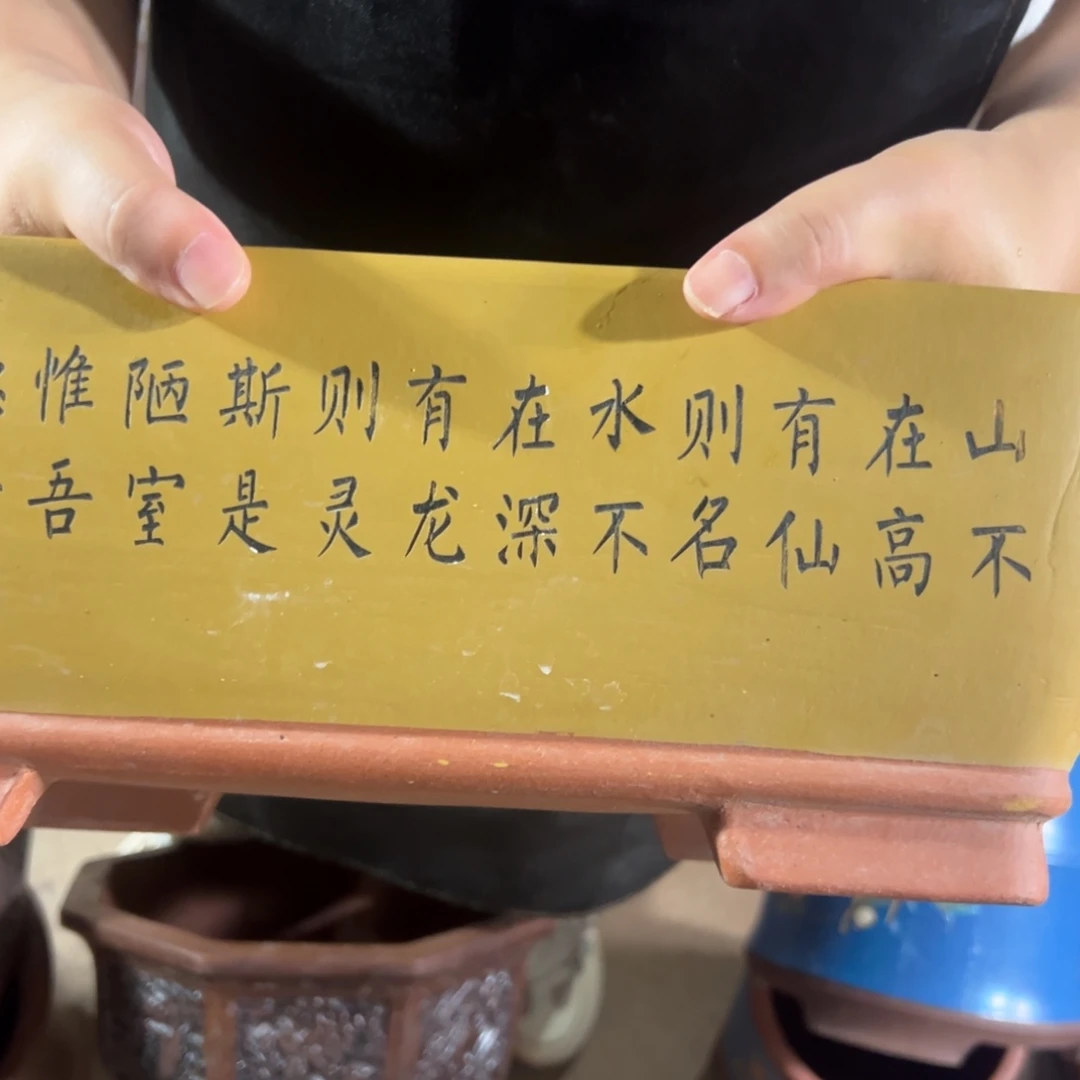 山不
在高
有仙
则名
水不
在深
有龙
则灵
斯是
陋室
惟吾